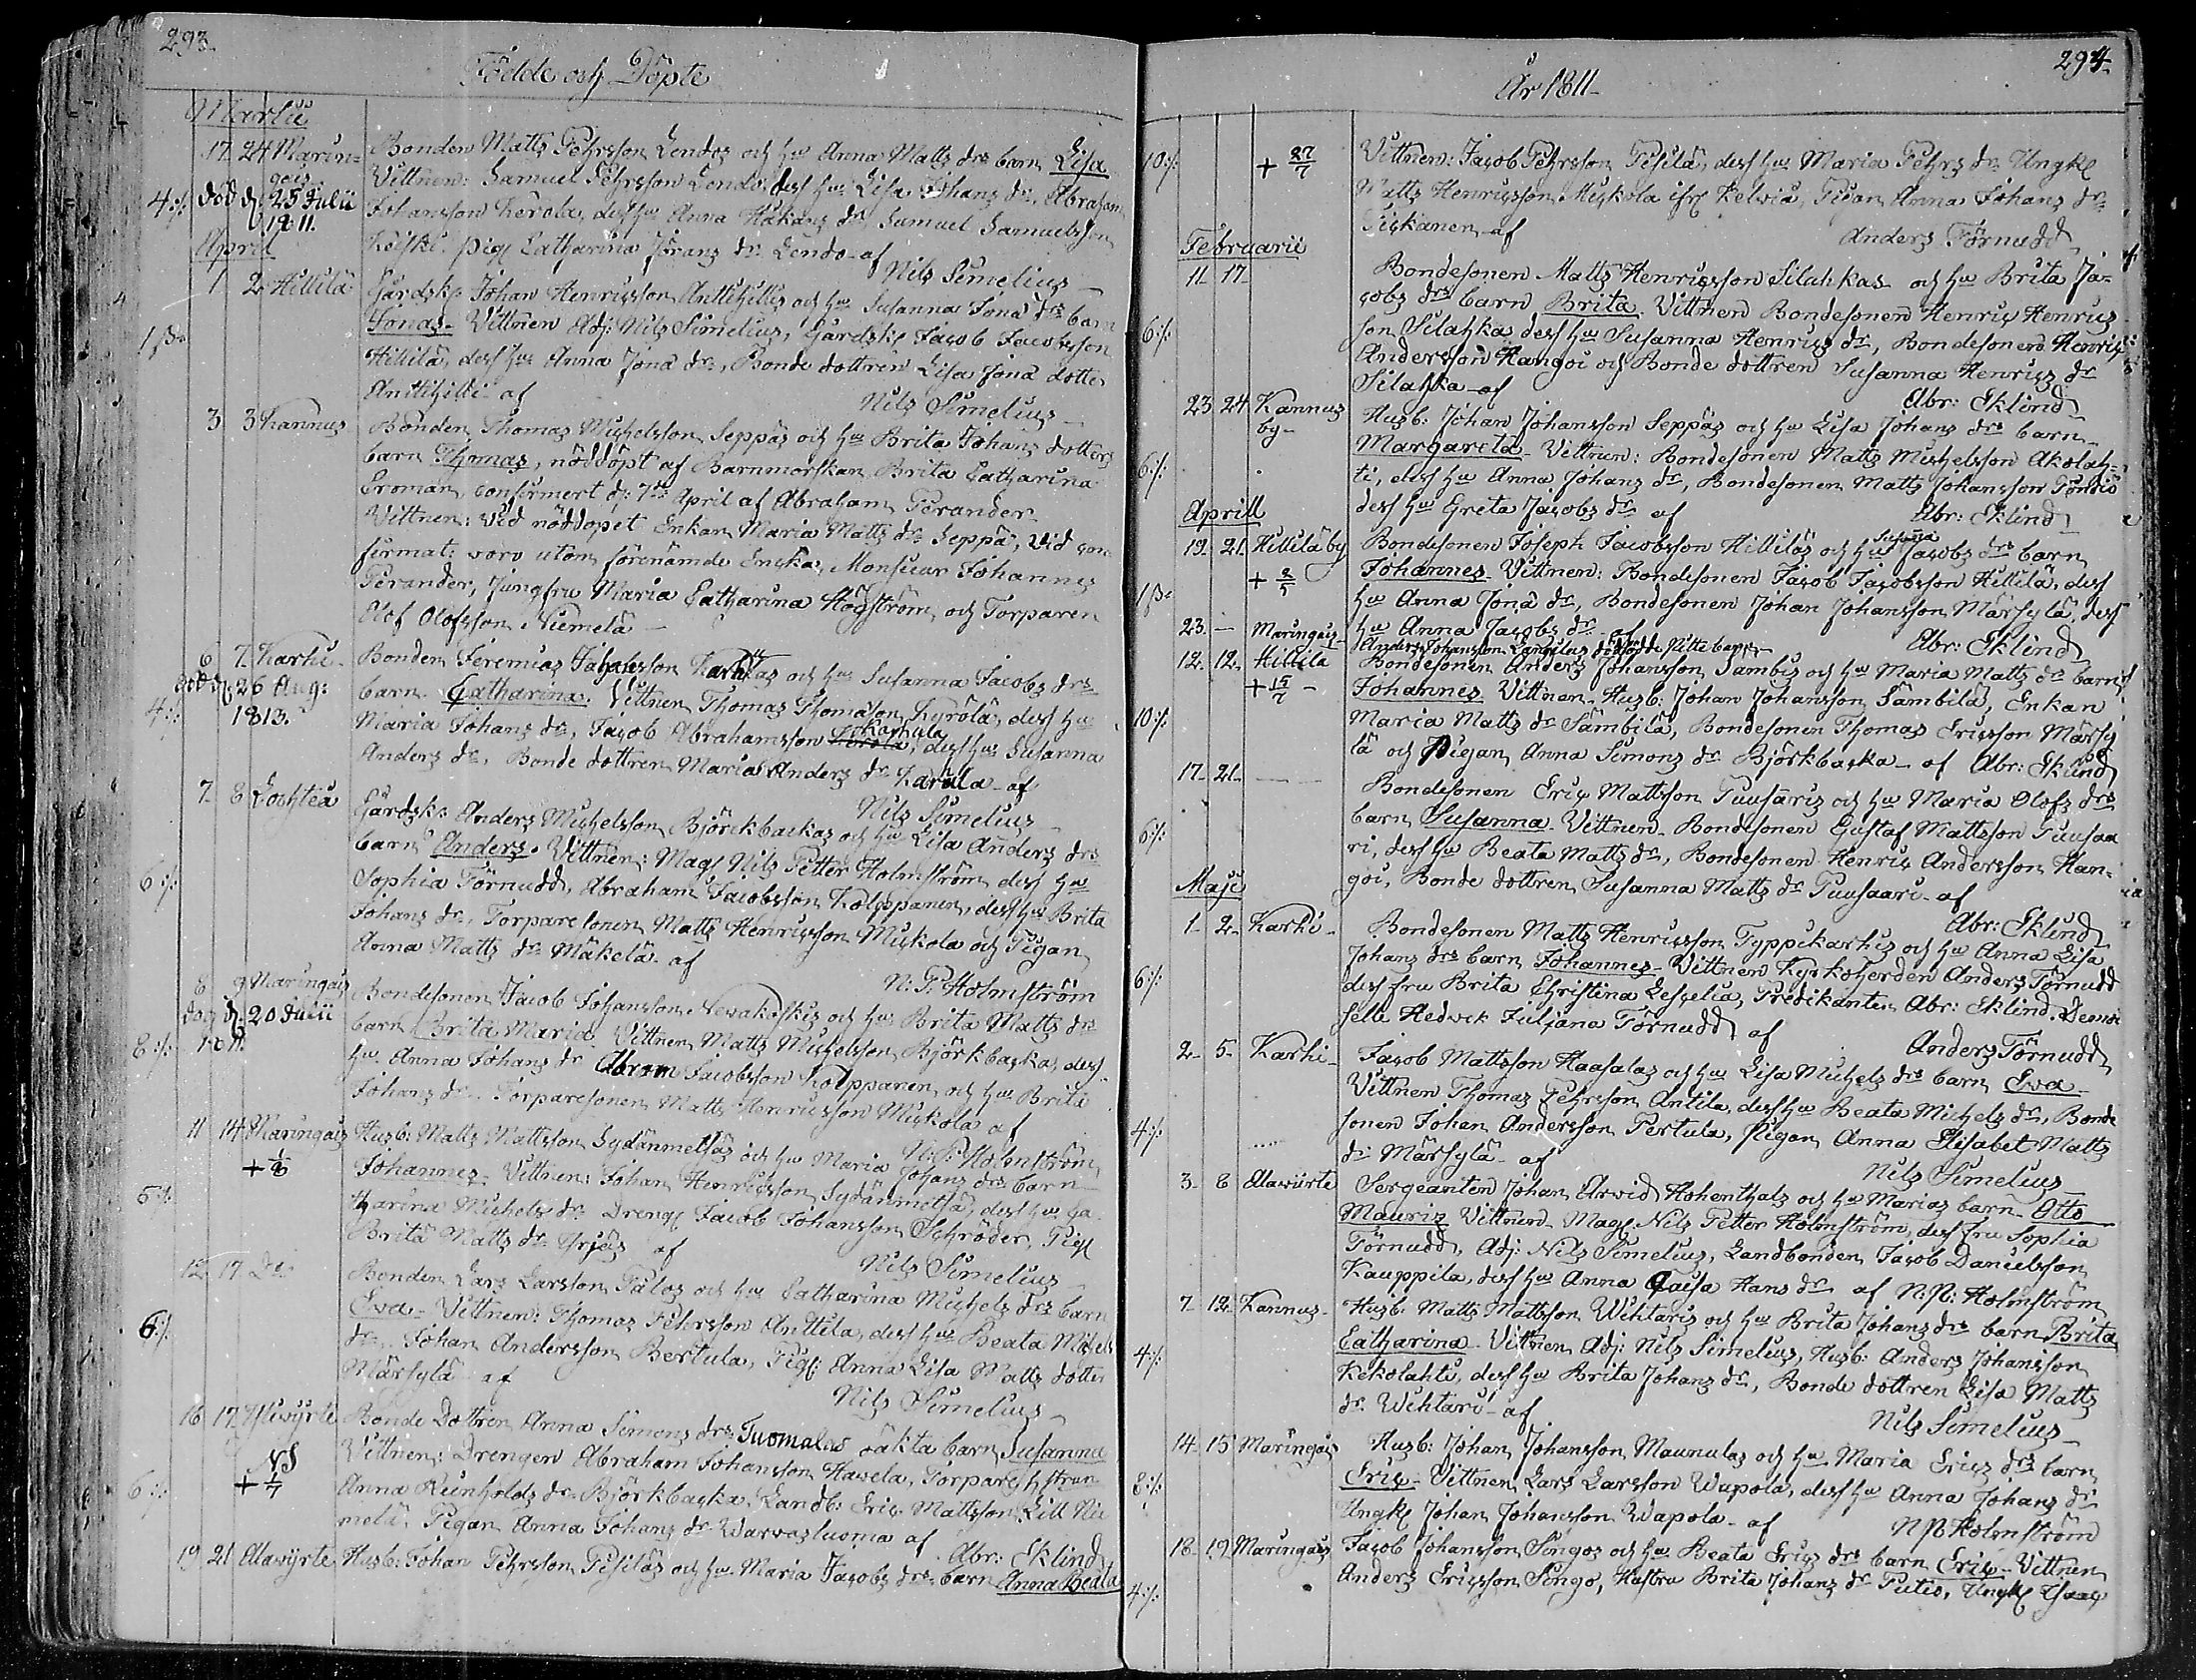 293.
Födde och Döpte
Martii
17. 24 Marin=
gais.
Bonden Matts Pehrsson Lendos och hu Anna Matts drs barn Lisa
Vittnen: Samuel Pehrsson Lendo, dess hu Lisa Johans dr, Abraham
4:/. död d. 25 Julii
1811.
Johansson Herola, dess hu Anna Håkans dr, Samuel Samuelsson
pig Catharina Jörans dr Lendo af
Nils Simelius
April
1 2 Hillilä
Gårdsk: Johan Henricsson Anttihillis och hu Susanna Jona drs barn
Jonas. Vittnen Adj: Nils Simelius, Gårdsk Jacob Jacobsson
Hillilä, dess hu Anna Jona dr, Bonde dottren Lisa Jona dotter
Anttihilli af
Nils Simelius
3 3 Kannus
Bonden Thomas Michelsson Seppäs och hu Brita Johans dotters
barn Thomas, nöddöpt af Barnmorskan Brita Catharina
Eroman, confirmert d: 7de April af Abraham Perander
Vittnen: vid nöddopet Enkan Maria Matts dr Seppä, vid con
firmat: woro utom förenämde Enka, Monsieur Johannes
Perander, Jungfru Maria Catharina Högström, och Torparen
Olof Olofsson Niemelä
6 7. Karhi
Bonden Jeremias Johansson och hu Susanna Jacobs drs
död d. 26 Aug:
1813.
4:/.
barn Catharina. Vittnen Thomas Thomasson Lyrölä, dess hu
Maria Johans dr, Jacob Abrahamsson Karhula, dess hu Susanna
Anders dr. Bonde dottren Maria Anders dr Karhula af
Nils Simelius
7. 8 Lochteå
Gårdsk: Anders Michelsson Björckbackas och hu Lisa Anders drs
barn Anders. Vittnen: Mag Nils Petter Holmström, dess hu
6:/.
Sophia Törnudd, Abraham Jacobsson Kolppanen, dess hu Brita
Johans dr, Torparesonen Matts Henricsson Myckola och Pigan
Anna Matts dr Mäkelä af
N: P. Holmström
8 9 Maringais
Bondesonen Jacob Johansson Newakoskis och hu Brita Matts drs
d. 20 Julii
8:/.
barn Brita Maria. Vittnen Matts Michelsson Björkbacka, dess
hu Anna Johans dr Abram Jacobsson Kolpparen, och hu Brita
Johans dr. Torparesonen Matts Henricsson Myckola af
N: P: Holmström
11 14 Maringais
Husb: Matts Mattsson Sydänmetsäs och hu Maria Johans drs barn
Johannes. Vittnen: Johan Henricsson Sydänmetsä, dess hu Ca
5:/.
tharina Michels dr Dreng Jacob Johansson Schröder, Pig
Brita Matts dr af
Nils Simelius
12 17 Do
Bonden Lars Larsson Palos och hu Catharina Michels drs barn
Ewa. Vittnen: Thomas Pehrsson Anttila, dess hu Beata Michels
6:/.
dr. Johan Andersson Bertula, Pig: Anna Lisa Matts dotter
Märsylä af
Nils Simelius
16 17 Alavijrte
Bonde Dottren Anna Simons drs Tuomalas oäkta barn Susanna
Vittnen: Drengen Abraham Johansson Hawela, Torpare hustrun
+ 1/7
6:/.
Anna Reinholds dr Björkbacka. Landb: Eric Mattsson Lill Nie
melä, Pigan Anna Johans dr Warvasluoma af
Abr: Eklind
19 21 Alavijrte
Husb: Johan Pehrsson Pesiläs och hu Maria Jacobs drs barn Anna Beata
294.
År 1811
10:/. + 27/7
Vittnen: Jacob Pehrsson Pesilä, dess hu Maria Pehrs dr Ungk
Matts Henricsson Myckola ifr Kelwiå, Pigan Anna Johans dr
af
Anders Törnudd
Februarii
11. 17.
Bondesonen Matts Henricsson Silahkas och hu Brita Ja=
cobs drs barn Brita. Vittnen Bondesonen Henric Henrics
6:/.
son Silahka dess hu Susanna Henrics dr, Bondesonen Henric
Andersson Hangoi och Bonde dottren Susanna Henrics dr
Silahka af
Abr: Eklind
23 24. Kannus
by
Husb: Johan Johansson Seppäs och hu Lisa Johans drs barn
Margareta. Vittnen: Bondesonen Matts Michelsson Akolah=
6:/.
ti, dess hu Anna Johans dr, Bondesonen Matts Johansson
dess hu Greta Jacobs dr af
Abr: Eklind
Aprill
19. 21. Hilliläby
Bondesonen Joseph Jacobsson Hilliläs och hu Susanna Jacobs drs barn
Johannes. Vittnen: Bondesonen Jacob Jacobsson Hillilä, dess
hu Anna Jona dr, Bondesonen Johan Johansson Märsylä, dess
hu Anna Jacobs dr af
Abr: Eklind
23. — Maringais
Anders Johansson dödfödde barn
12. 12. Hillila
+ 15/7
Bondesonen Anders Johansson Sambis och hu Maria Matts dr barn
Johannes. Vittnen. Husb: Johan Johansson Sämbilä, Enkan
10:/.
Maria Matts dr Sämbilä, Bondesonen Thomas Ericsson Märsy
lä och Pigan Anna Simons dr Björkbacka af Abr: Eklind
17. 21.
Bondesonen Eric Mattsson Tuusaris och hu Maria Olofs drs
barn Susanna. Vittnen. Bondesonen Gustaf Mattsson Tuusaa
6:/.
ri, dess hu Beata Matts dr, Bondesonen Henric Andersson Han=
goi, Bonde dottren Susanna Matts dr Tuusaari af
Abr: Eklind
Maji
1. 2. Karhi
Bondesonen Matts Henricsson Typpikarhis och hu Anna Lisa
Johans drs barn Johannes. Vittnen Kyrkoherden Anders Törnudd
6:/.
dess fru Brita Christina Lescelia, Predikanten Abr: Eklind. Demoi
selle Hedwik Juljana Törnudd af
Anders Törnudd
2. 5. Karhi
Jacob Mattsson Haasalas och hu Lisa Michels drs barn Ewa
Vittnen Thomas Pehrsson Antila, dess hu Beata Michels dr, Bonde
4:/.
sonen Johan Andersson Pertula, Pigan Anna Elisabet Matts
dr Märsylä af
Nils Simelius
3. 6 Alawiirte
Sergeanten Johan Arwid Hohenthals och hu Marias barn Otto
Mauriz Vittnen Mag Nils Petter Holmström, dess fru Sophia
Törnudd, Adj: Nils Simelius, Landbonden Jacob Danielsson
Kauppila, dess hu Anna Caisa Hans dr af N: P: Holmström
7. 12. Kannus
Husb: Matts Mattsson Wihtaris och hu Brita Johans drs barn Brita
Catharina. Vittnen Adj: Nils Simelius, Husb: Anders Johansson
4:/.
Kekolahti, dess hu Brita Johans dr, Bonde dottren Lisa Matts
dr Wihtari af
Nils Simelius
14. 15 Maringais
Husb: Johan Johansson Maunulas och hu Maria Erics drs barn
8:/.
Eric. Vittnen Lars Larsson Wapola, dess hu Anna Johans dr
Ungk Johan Johansson Wapola af
N P Holmström
18. 19 Maringais
Jacob Johansson Singos och hu Beata Erics drs barn Eric. Vittnen
4:/.
Anders Ericsson Singo, Hustru Brita Johans dr Pietis, Ungk